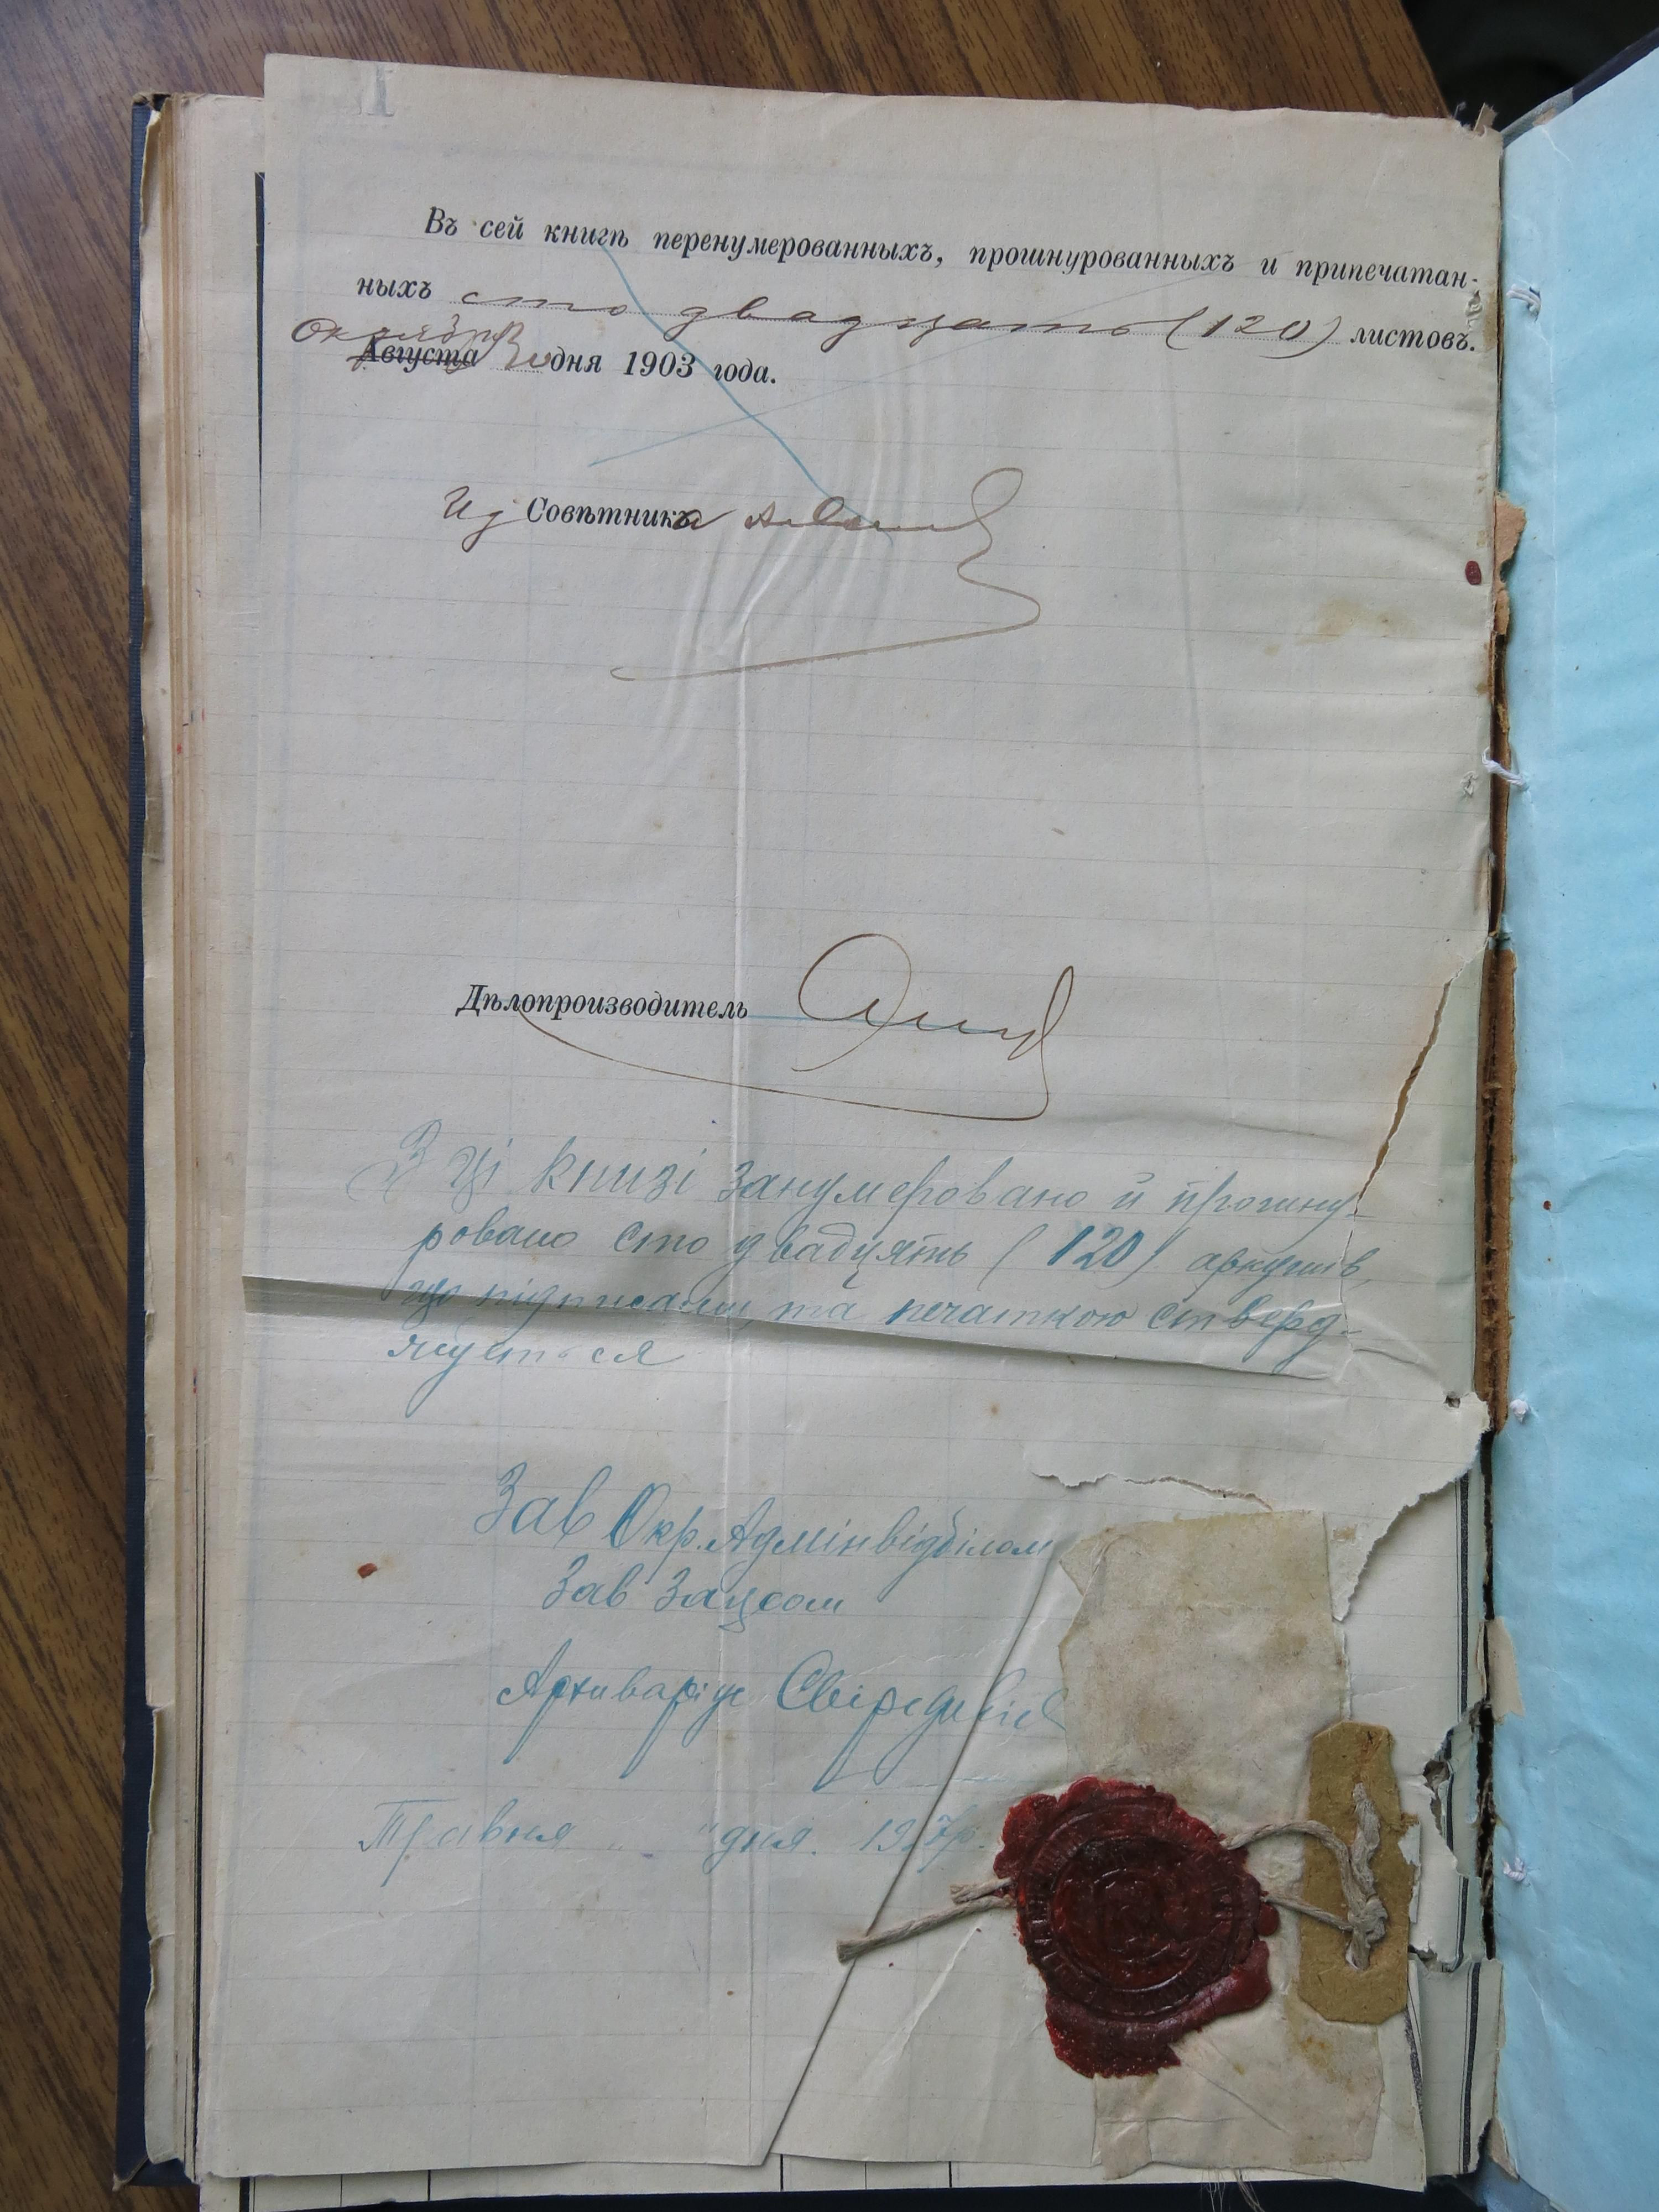 Въ сей книгѣ перенумерованныхъ, прошнурованныхъ и припечатан-
ныхъ сто двадцать (120) листовъ.
Октября
Августа дня 1903 года.
Ид Совѣтника
Дѣлопроизводитель
В ці книзі занумеровано й прошну-
ровано сто двадцять (120) аркушів,
що підписами, та печаткою стверд-
жується
Зав Окр. Адмінвідділом
Зав Загсом
Архиваріус
Травня " " дня. 192